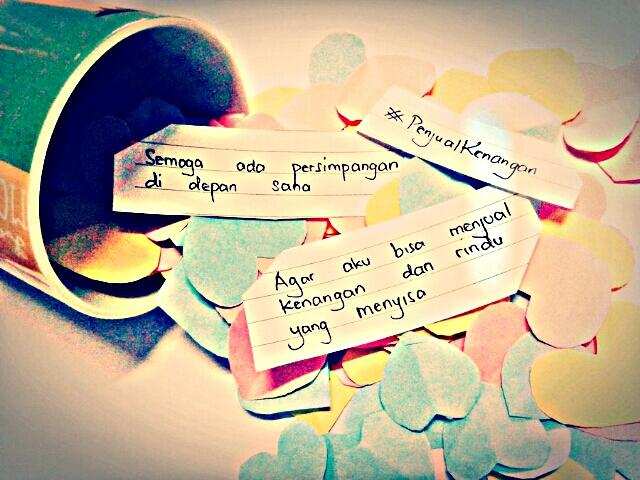 #PenjualKenangan
Semoga ada persimpangan
di depan sana
Agar aku bisa menjual
kenangan dan rindu
yang menyisa